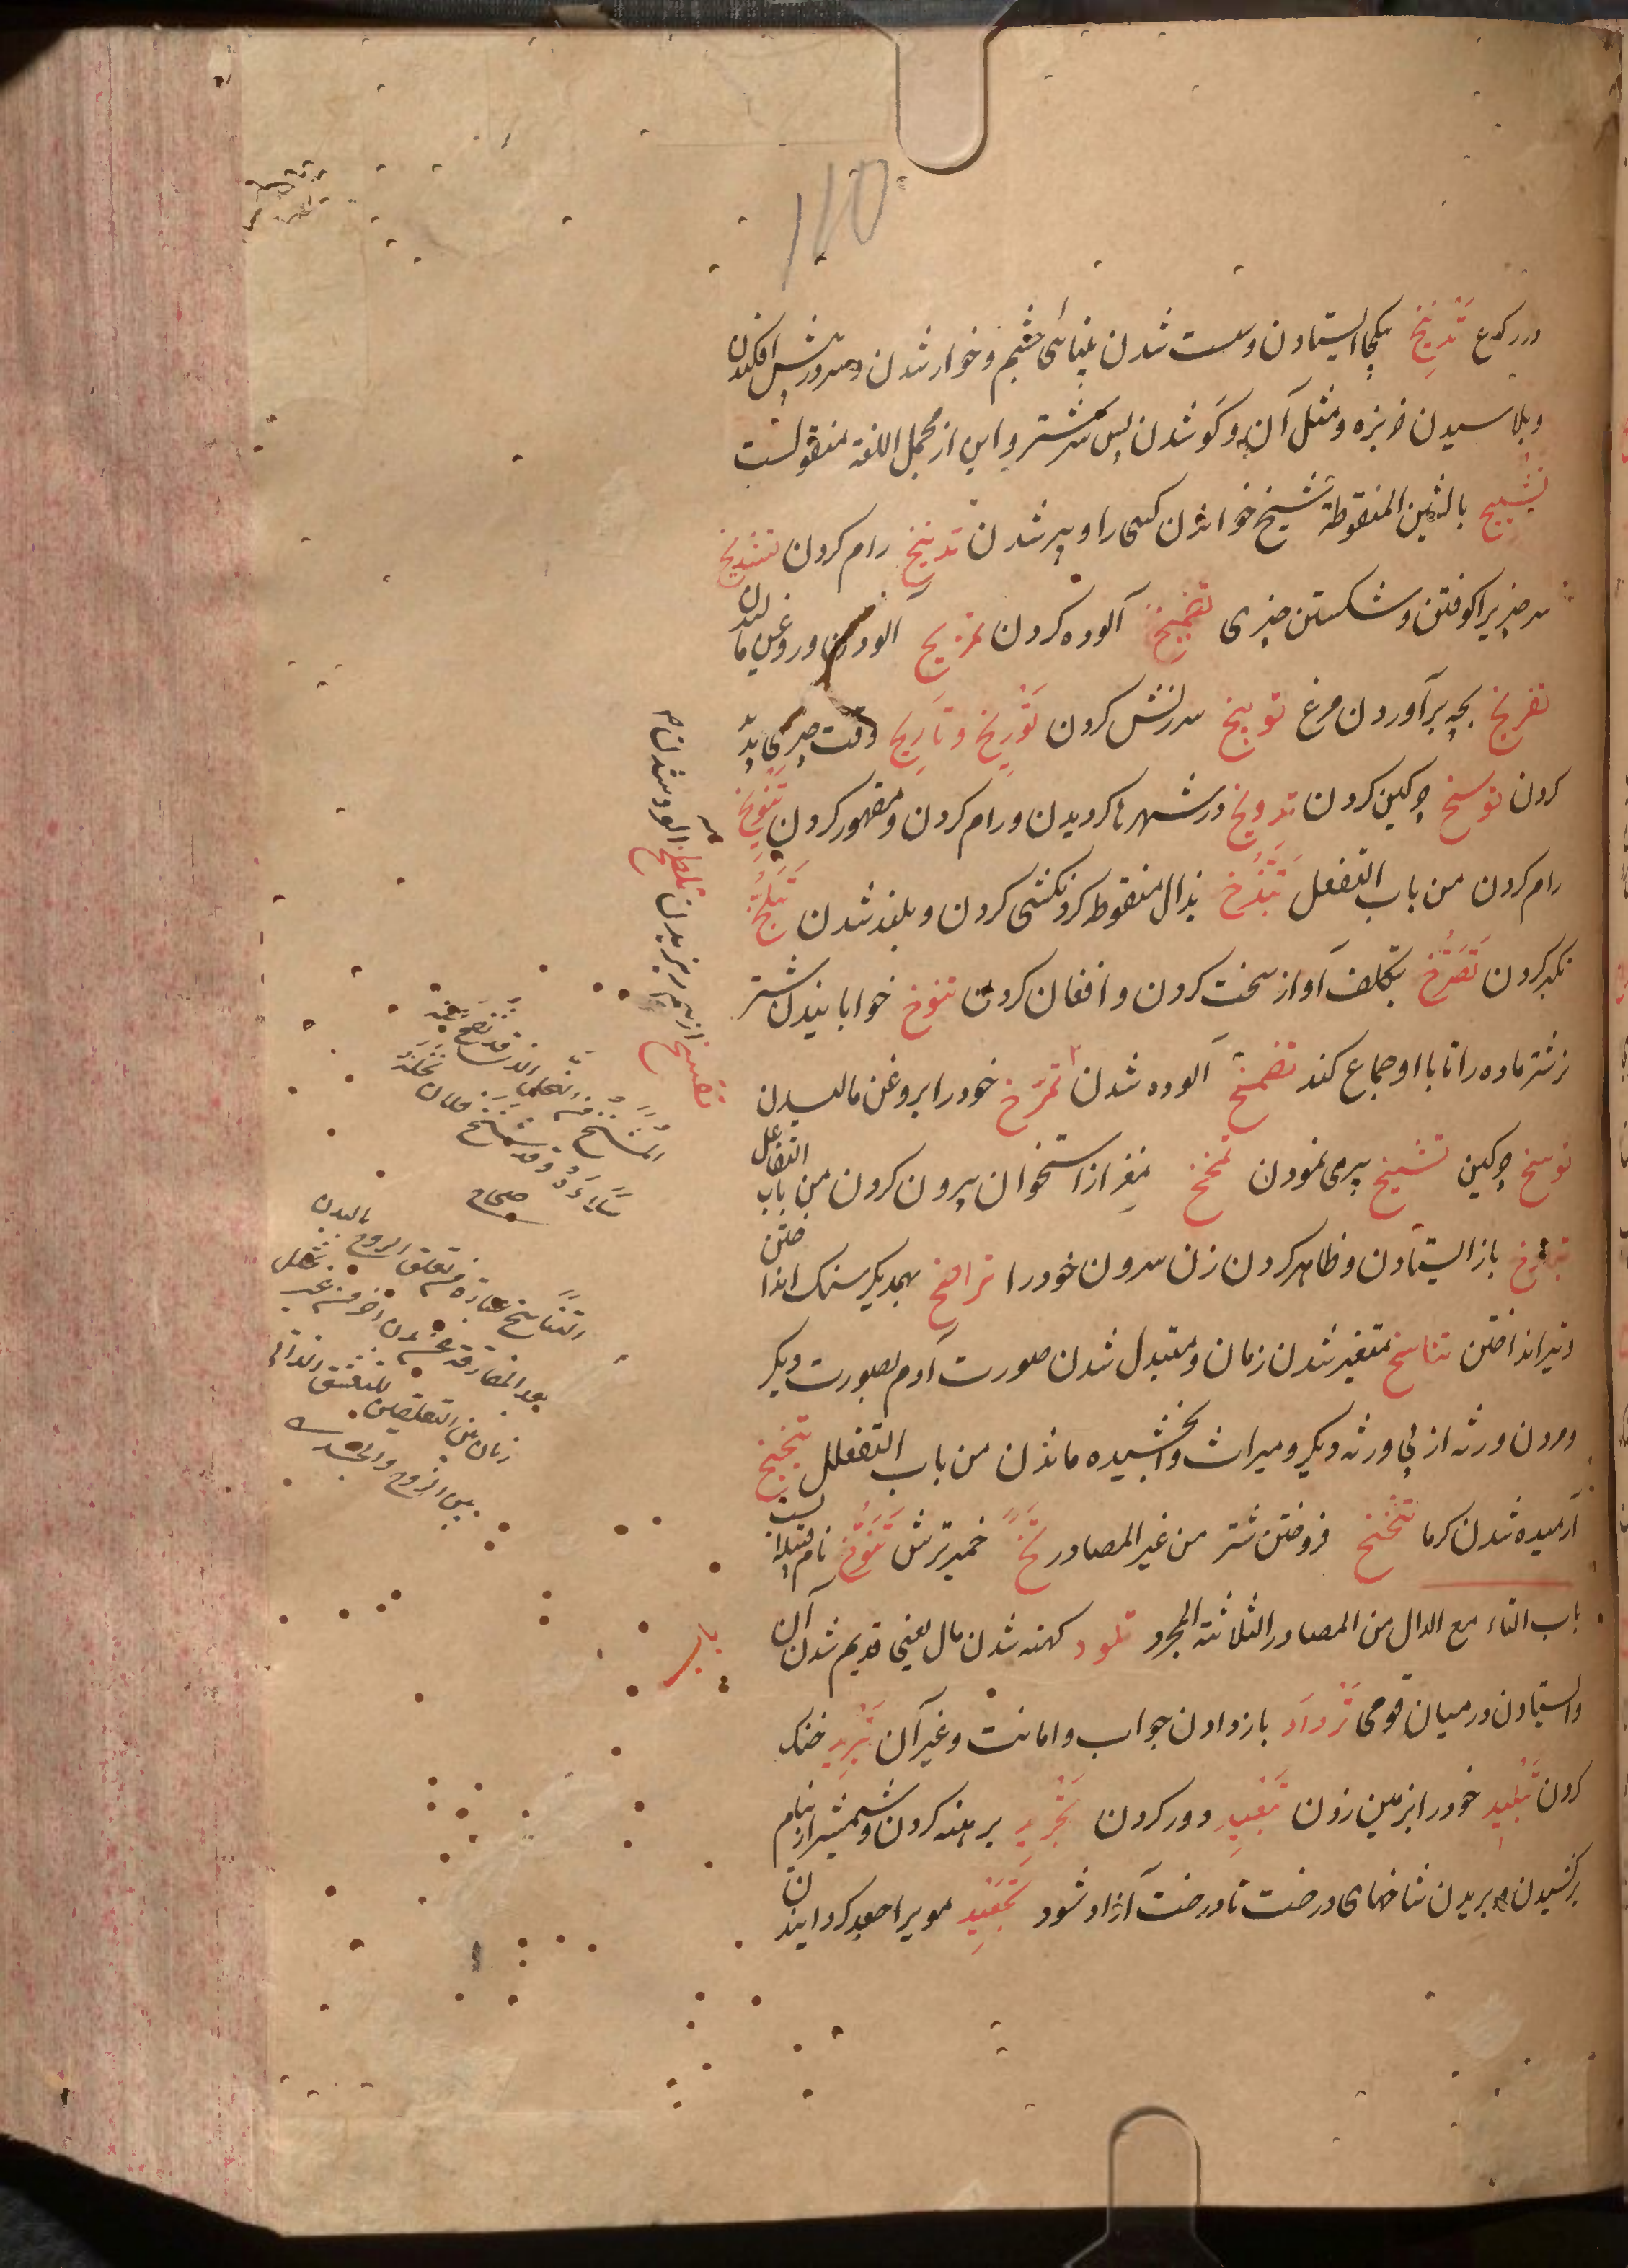 110
در رکوع تَدْبِیخ بکجا ایستادن و سست شدن بینائی چشم و خوار شدن و سر در پیش افکندن
و پلاسیدن خربزه و مثل آن و کو شدن پس سر شتر و این از مجمل اللغة منقولست
تشییخ بالشین المنقوطة شیخ خواندن کسی را و پیر شدن تدییخ رام کردن تشدیخ
سر چیزیرا کوفتن و شکستن چیزی تضمیخ آلوده کردن تمریخ آلودن و روغن مالیدن
تفریخ بچه برآوردن مرغ توبیخ سرزنش کردن تَوْرِیخ و تَارِیخ وقت چیزی پدید
کردن توسیخ چرکین کردن تدویخ در شهرها کردیدن و رام کردن و مقهور کردن تَنْوِیخ
رام کردن من باب التفعل تَبَذُّخ بذال منقوطه کردنکشی کردن و بلند شدن تَبَلُّخ
تکبر کردن تَصَرُّخ بتکلف آواز سخت کردن و افغان کردن تنوخ خوابانیدن شتر
نر شتر ماده را تا با او جماع کند تضمخ آلوده شدن تمرّخ خود را بروغن مالیدن
توسخ چرکین تشیخ پیری نمودن تمخخ مغز از استخوان بیرون کردن من باب التفاعل
تبازخ باز ایستادن و ظاهر کردن زن سرون خود را تراضخ بهمدیکر سنک انداختن
و تیر انداختن تناسخ متغیر شدن زمان و متبدل شدن صورت آدم بصورت دیکر
و مردن ورثه از پی ورثه دیکر و میراث نابخشیده ماندن من باب التفعلل تبخبخ
آرمیده شدن کرما تنخنخ فروختن شتر من غیر المصادر تَخّ خمیر ترش تَنُوخ نام قبیله ایست
باب التاء مع الدال من المصادر الثلاثة المجرد تلود کهنه شدن مال یعنی قدیم شدن آن
و ایستادن در میان قومی تَرْدَاد باز دادن جواب و امانت و غیر آن تَبْرِید خنک
کردن تَبْلِید خود را بزمین زدن تَبْعِید دور کردن تَجْرِید برهنه کردن و شمشیر از نیام
برکشیدن و بریدن شاخهای درخت تا درخت آزاد شود تَجْعِید مویرا جعد کردانیدن
تفسخ از هم ریزیدن تلطخ آلوده شدن
صحاح
التناسخ عبارة عن تعلق الروح بالبدن
بعد المفارقة عن بدن آخر من غیر تخلل
زمان بین التعلقین للتعشق الذاتی
بین الروح والجسد
باب